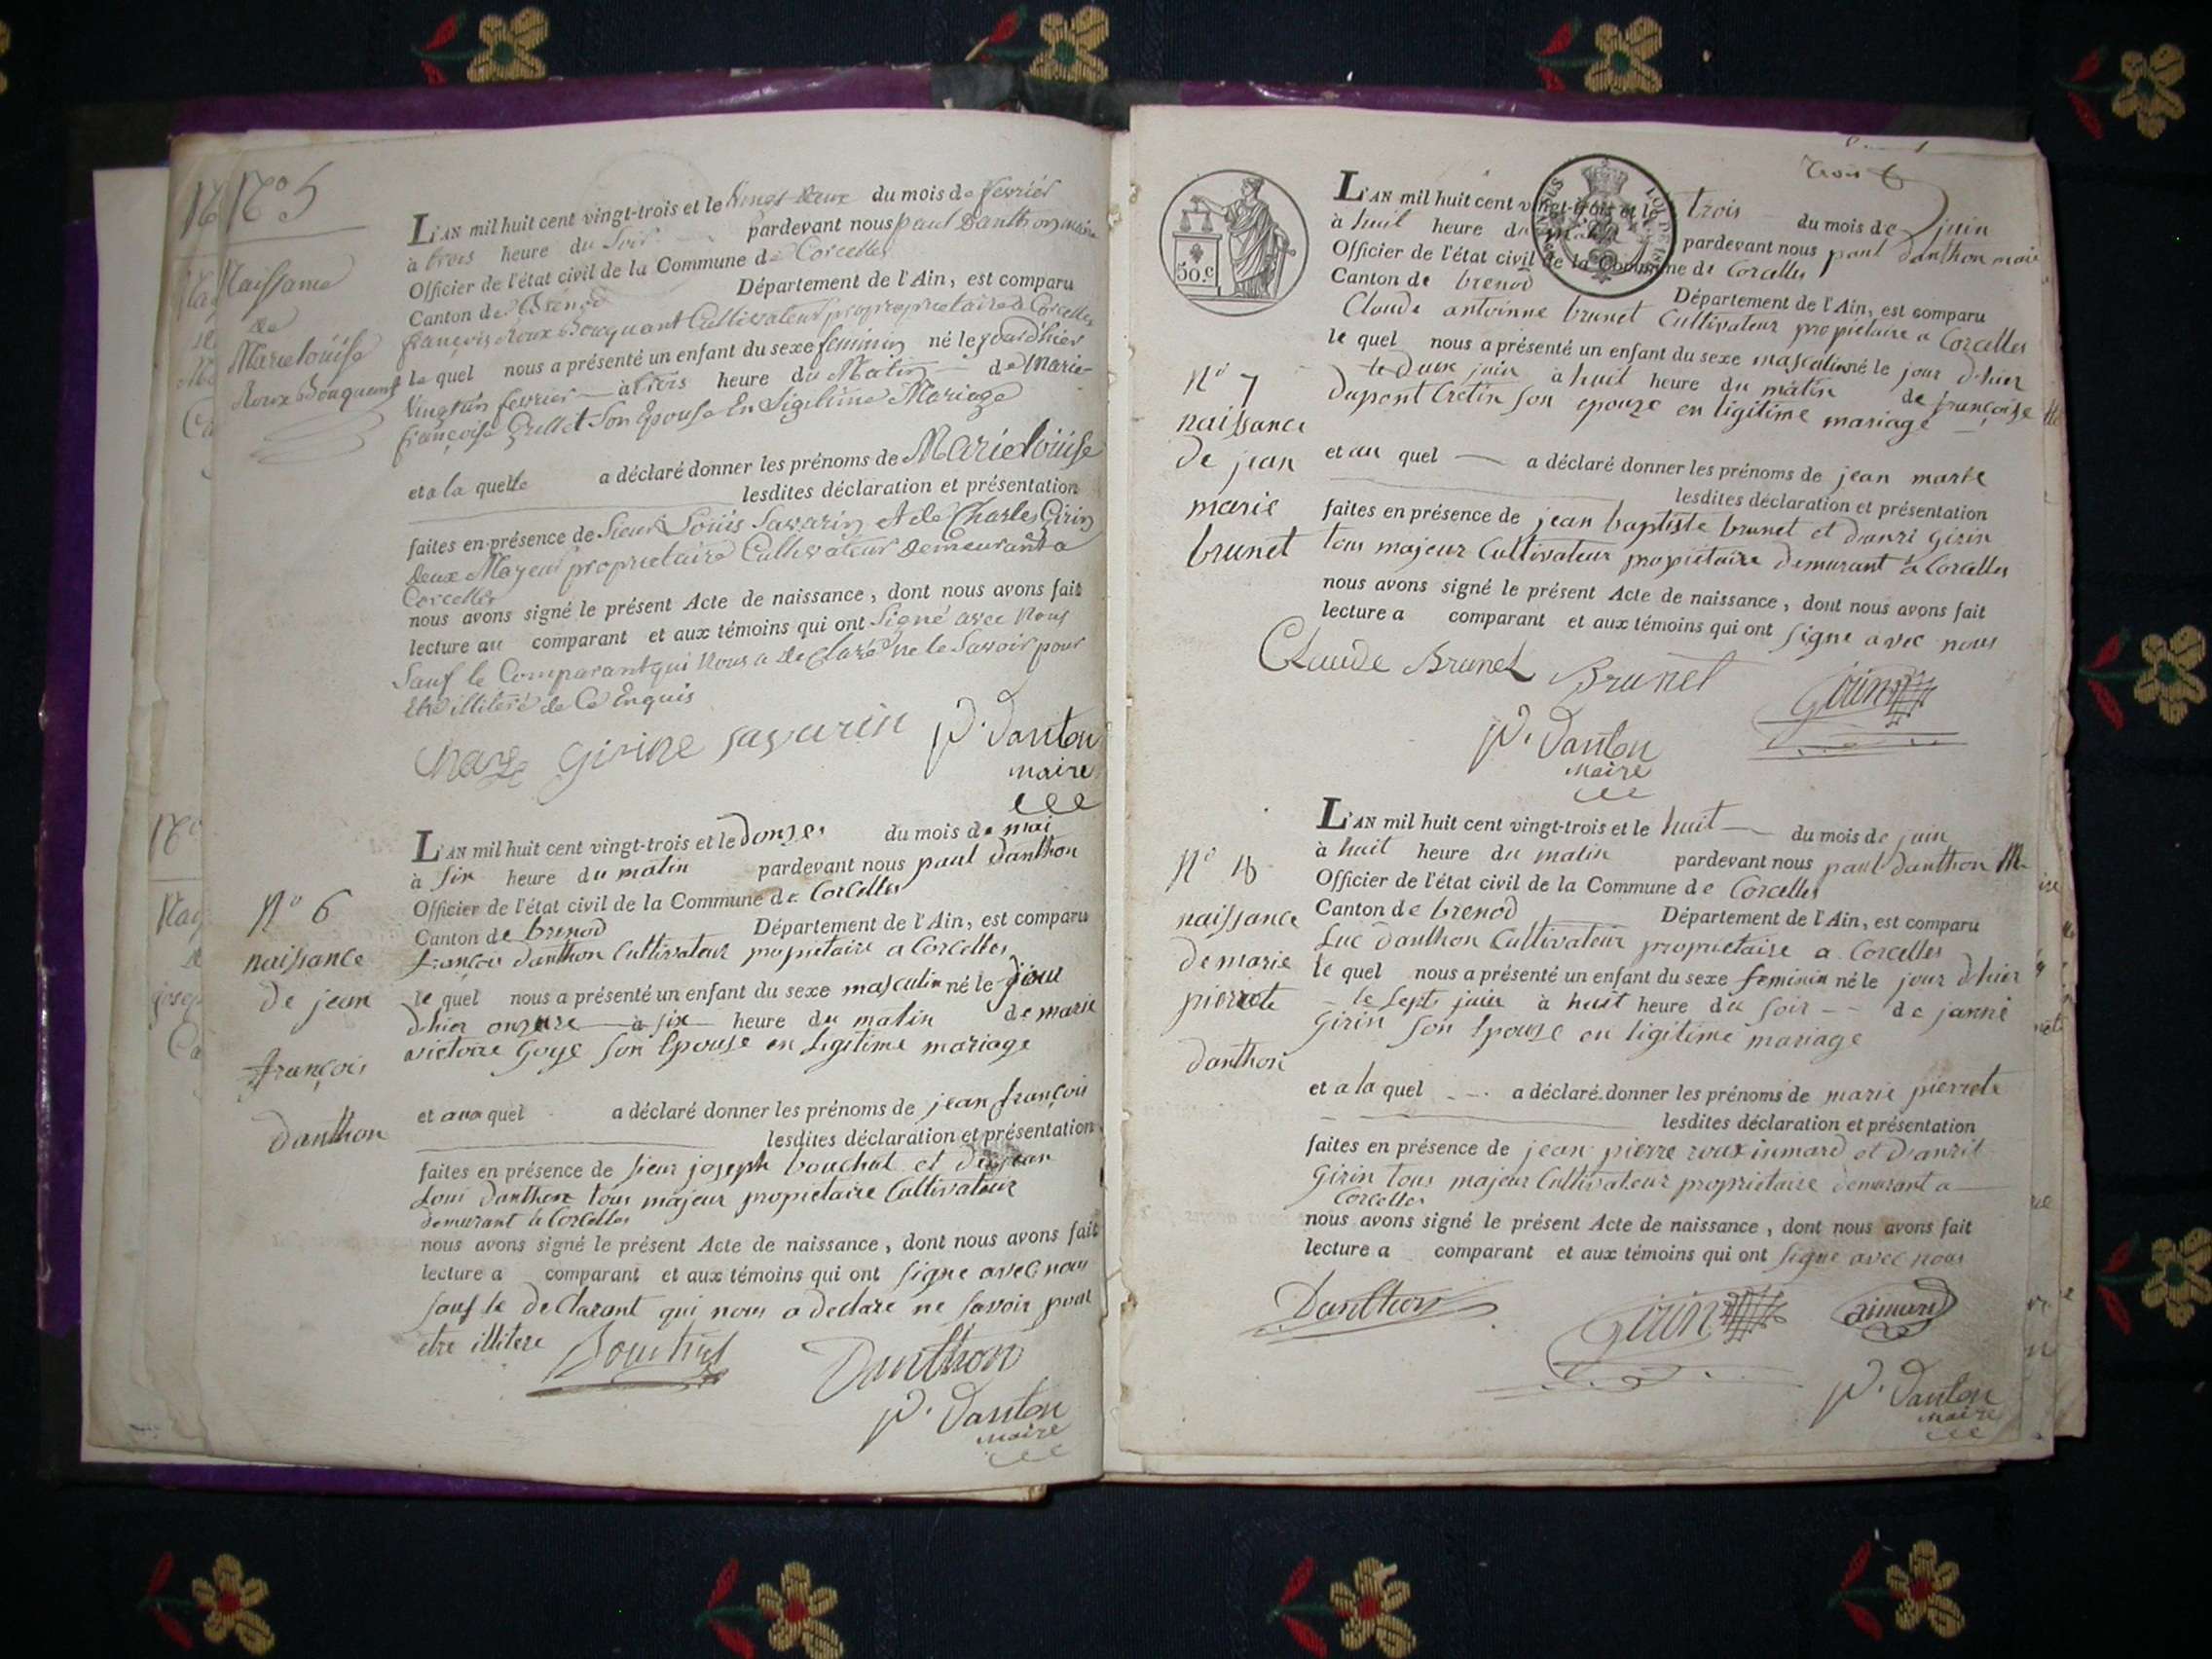 N° 5
Naissance
de
Marie louise
Roux Bouquant
L'AN mil huit cent vingt-trois et le vingt deux du mois de fevrier
à trois heure du soir pardevant nous paul Danthon maire
Officier de l'état civil de la Commune de Corcelles
Canton de Brenod Département de l'Ain, est comparu
françois Roux Bouquant Cultivateur propriétaire a Corcelles
le quel nous a présenté un enfant du sexe feminin né le jour d'hier
vingt un fevrier à trois heure du Matin de Marie
françoise Grillet Son Epouse EnLigitime Mariage
et a la quelle a déclaré donner les prénoms de Marie louise
lesdites déclaration et présentation
faites en présence de Sieur Louis Savarin et de Charles Girin
deux Majeur proprietaire Cultivateur demeurant a
Corcelles
nous avons signé le présent Acte de naissance, dont nous avons fait
lecture au comparant et aux témoins qui ont Signé avec Nous
Sauf le Comparant qui Nous a declaré ne le Savoir pour
etre illiteré de Ce Enquis
Girine savarin P. Danton
maire
N° 6
naissance
de jean
françois
danthon
L'AN mil huit cent vingt-trois et le douze du mois de mai
à six heure du matin pardevant nous paul danthon
Officier de l'état civil de la Commune de Corcelles
Canton de brenod Département de l'Ain, est comparu
françois danthon Cultivateur propietaire a Corcelles
le quel nous a présenté un enfant du sexe masculin né le jour
dhier onze à six heure du matin de marie
victoire Goye son epouse en Legitime mariage
et au quel a déclaré donner les prénoms de jean françois
lesdites déclaration et présentation
faites en présence de sieur joseph bouchut et de jean
Loui danthon tous majeur propietaire Cultivateur
demurant à Corcelles
nous avons signé le présent Acte de naissance, dont nous avons fait
lecture a comparant et aux témoins qui ont signe avec nous
sauf le declarant qui nous a declaré ne savoir pour
etre illitere Bouchut Danthon
P. Danton
maire
trois
50.c
L'AN mil huit cent vingt-trois et le trois du mois de juin
à huit heure du matin pardevant nous paul danthon maire
Officier de l'état civil de la Commune de Corcelles
Canton de brenod Département de l'Ain, est comparu
Claude antoinne brunet Cultivateur propietaire a Corcelles
le quel nous a présenté un enfant du sexe masculin né le jour dhier
le deux juin à huit heure du matin de françoise
dupont Cretin son epouze en ligitime mariage
N° 7
naissance
de jean
marie
brunet
et au quel a déclaré donner les prénoms de jean marie
lesdites déclaration et présentation
faites en présence de jean baptiste brunet et d'anri Girin
tous majeur Cultivateur propietaire demurant à Corcelles
nous avons signé le présent Acte de naissance, dont nous avons fait
lecture a comparant et aux témoins qui ont signe avec nous
Claude Brunet Brunet Girin
P. Danton
maire
N° 8
naissance
de marie
pierrete
danthon
L'AN mil huit cent vingt-trois et le huit du mois de juin
à huit heure du matin pardevant nous paul danthon M
Officier de l'état civil de la Commune de Corcelles
Canton de brenod Département de l'Ain, est comparu
Luc danthon Cultivateur proprietaire a Corcelles
le quel nous a présenté un enfant du sexe feminin né le jour dhier
le sept juin à huit heure du soir de janne
Girin son epouze en ligitime mariage
et a la quel a déclaré donner les prénoms de marie pierrete
lesdites déclaration et présentation
faites en présence de jean pierre roux inmard et d'anri
Girin tous majeur Cultivateur proprietaire demurant a
Corcelles
nous avons signé le présent Acte de naissance, dont nous avons fait
lecture a comparant et aux témoins qui ont signe avec nous
Danthon Girin aimard
P. Danton
maire